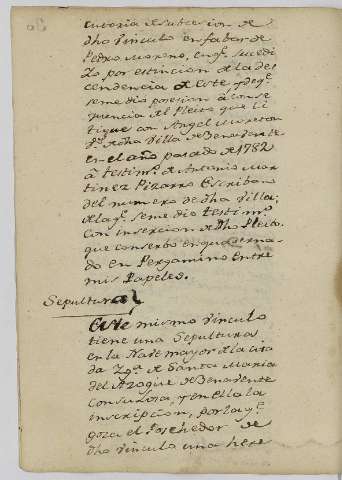 cutoria de subcesion de
dho vinculo en fabor de
Pedro Moreno, en qn. sucedi
zo por estincion de la des
cendencia de este, y de qe.
se me dio posesion à conse
quencia del Pleito que li
tigue con Angel Moreton
Vº. de dha Villa de Benavente
en el año pasado de 1782
â testimº. de Antonio Mar
tinez Pizarro Escribano
del numero de dha Villa;
de la qe. se me dio testimº.
con insercion de dho Pleito.
que conserbo enquaderna
do en Pergamino entre
mis Papeles.
Sepultura
Este mismo Vinculo
tiene una Sepultura
en la Nabe mayor de la cita
da Yga. de Santa Maria
del Azogue de Benavente
con su Losa, y en ella la
inscripcion, por la qe.
goza el Poshedor de
dho Vinculo una here